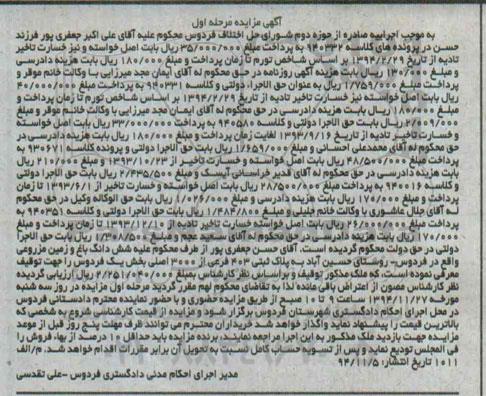 آگهی مزایده مرحله اول
به موجب اجرائیه صادره از حوزه دوم شورای حل اختلاف فردوس محکوم علیه آقای علی اکبر جعفری پور فرزند
حسن در پرونده های کلاسه ۹۴۰۳۳۲ به پرداخت مبلغ ۳۵/۰۰۰/۰۰۰ ریال بابت اصل خواسته و نیز خسارت تاخیر
تادیه از تاریخ ۱۳۹۴/۲/۲۹ بر اساس شاخص تورم تا زمان پرداخت و مبلغ ۱۸۰/۰۰۰ ریال بابت هزینه دادرسی
و مبلغ ۱۳۰/۰۰۰ ریال بابت هزینه آگهی روزنامه در حق محکوم له آقای ایمان مجد میرزایی با وکالت خانم موقر و
پرداخت مبلغ ۱/۷۵۹/۰۰۰ ریال به عنوان حق الاجراء دولتی و کلاسه ۹۴۰۳۳۱ به پرداخت مبلغ ۴۰/۰۰۰/۰۰۰
ریال بابت اصل خواسته نیز خسارت تاخیر تادیه از تاریخ ۱۳۹۴/۲/۲۹ بر اساس شاخص تورم تا زمان پرداخت و
مبلغ ۱۸۰/۰۰۰ ریال بابت هزینه دادرسی در حق محکوم له آقای ایمان مجد میرزایی با وکالت خانم موقر و مبلغ
۲/۰۰۹/۰۰۰ ریال بابت حق الاجرا دولتی و کلاسه ۹۴۰۵۸۰ به پرداخت ۳۳/۰۰۰/۰۰۰ ریال بابت اصل خواسته
و خسارت تاخیر تادیه از تاریخ ۱۳۹۳/۹/۱۶ لغایت زمان پرداخت و مبلغ ۱۸۰/۰۰۰ ریال بابت هزینه دادرسی در
حق محکوم له آقای محمدعلی احسانی و مبلغ ۱/۶۵۹/۰۰۰ ریال بابت حق الاجرا دولتی و پرونده ۹۳۰۶۷۱ به
پرداخت مبلغ ۴۸/۵۰۰/۰۰۰ ریال بابت اصل خواسته و خسارت تاخیر از ۱۳۹۳/۱۰/۲۳ و مبلغ ۲۱۰/۰۰۰ ریال
بابت هزینه دادرسی در حق محکوم له آقای قدیر خراسانی آیسک و مبلغ ۲/۴۳۵/۵۰۰ ریال بابت حق الاجرا دولتی
و کلاسه ۹۴۰۰۱۶ به پرداخت مبلغ ۲۸/۵۰۰/۰۰۰ ریال بابت اصل خواسته و خسارت تاخیر از ۱۳۹۳/۶/۱ تا زمان
پرداخت و مبلغ ۱۷۰/۰۰۰ ریال بابت هزینه دادرسی و مبلغ ۱/۰۲۶/۰۰۰ ریال بابت حق الوکاله وکیل در حق محکوم
له آقای جلال عاشوری با وکالت خانم جلیلی و مبلغ ۱/۴۸۴/۸۰۰ ریال بابت حق الاجرا دولتی و کلاسه ۹۴۰۳۵۱ به
پرداخت مبلغ ۲۶/۰۰۰/۰۰۰ ریال بابت اصل خواسته خسارت تاخیر تادیه از ۱۳۹۳/۱۲/۱۰ تا زمان پرداخت و مبلغ
۱۷۰/۰۰۰ ریال بابت هزینه دادرسی در حق محکوم له آقای سعید عجم و مبلغ ۱/۳۰۸/۵۰۰ ریال بابت حق الاجرا
دولتی در حق دولت محکوم گردیده است. آقای حسن جعفری پور از طرف محکوم علیه شش دانگ باغ و زمین مزروعی
واقع در فردوس- روستای حسین آباد به پلاک ثبتی ۴۰۳ فرعی از ۳۰۰۰ اصلی بخش یک فردوس را جهت توقیف
معرفی نموده است، که ملک مذکور توقیف و براساس نظر کارشناس بمبلغ ۲/۲۵۱/۰۴۰/۰۰۰ ریال ارزیابی گردیده
نظر کارشناس مصون از اعتراض باقی مانده لذا به تقاضای محکوم لهم مقرر گردید مرحله اول مزایده در روز سه شنبه
مورخه ۱۳۹۴/۱۱/۲۷ ساعت ۹ تا ۱۰ صبح از طریق مزایده حضوری و با حضور نماینده محترم دادستانی فردوس
در محل اجرای احکام دادگستری شهرستان فردوس برگزار شود و مزایده از قیمت کارشناسی شروع به شخصی که
بالاترین قیمت را پیشنهاد نماید واگذار خواهد شد خریداران محترم می توانند ظرف مهلت پنج روز قبل از موعد
مزایده جهت بازدید ملک مذکور به این اجرا مراجعه نمایند، برنده مزایده باید حداقل ۱۰ درصد از بها، فروش را
فی المجلس تودیع نماید و پس از تسویه حساب کامل نسبت به تحویل آن برابر مقررات اقدام خواهد شد. م/الف
۱۰۱۱ تاریخ انتشار: ۹۴/۱۱/۵
مدیر اجرای احکام مدنی دادگستری فردوس -علی تقدسی